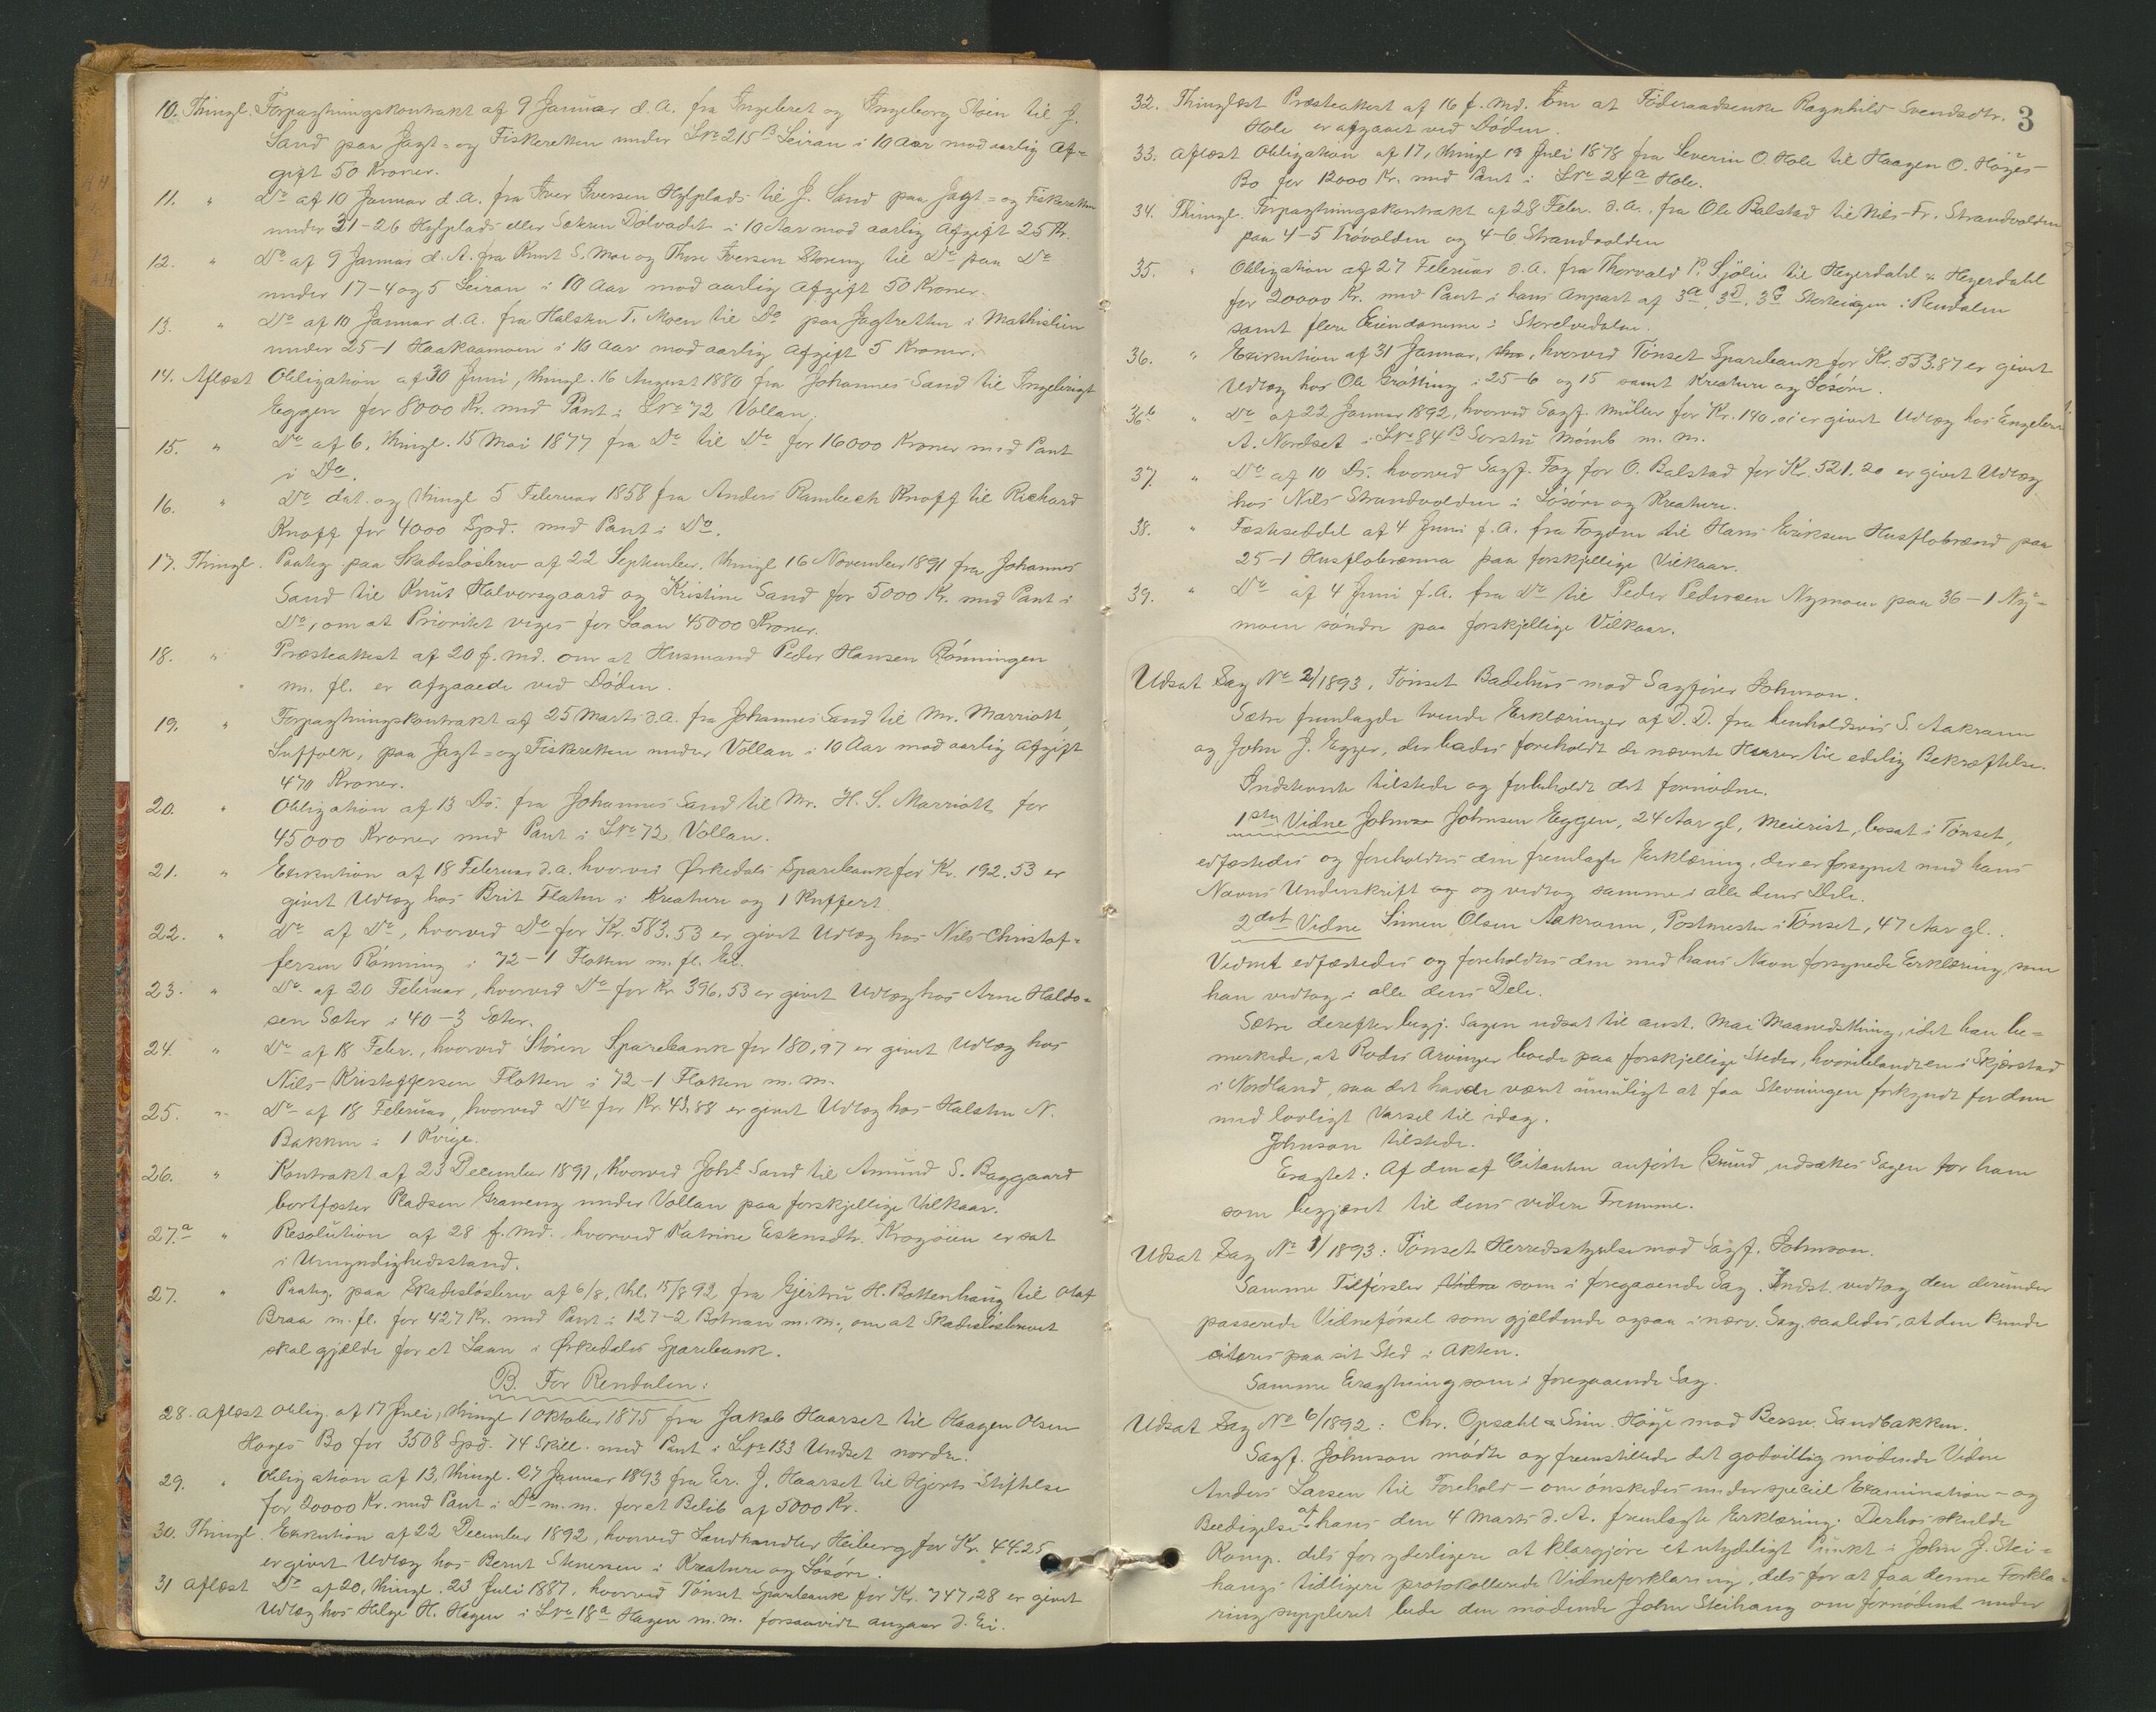 10. Thingl. Forpagtningskontrakt af 9 Januar d. A. fra Ingebret og Ingeborg Stoin til J.
Sand paa Jagt- og Fiskeretten under LNo 215 B Leiran i 10 Aar mod aarlig Af-
gift 50 Kroner.
11. " Do af 10 Januar d. A. fra Iver Iversen Hylplads til J. Sand paa Jagt- og Fiskeretten
under 31-26 Hylplads eller Dölvadet i 10 Aar mod aarlig Afgift 25 Kr.
12. " Do af 9 Januar d. A. fra Knut S. Moe og Thore Iversen Storeng til Do paa Do
under 17-4 og 5 Leiran i 10 Aar mod aarlig Afgift 50 Kroner.
13. " Do af 10 Januar d. A. fra Halsten T. Moen til Do paa Jagtretten i Mathislien
under 25-1 Haakaamoen i 10 Aar mod aarlig Afgift 5 Kroner.
14. Aflæst Obligation af 30 Juni, thingl. 16 August 1880 fra Johannes Sand til Ingebrigt
Eggen for 8000 Kr. med Pant i LNo 72 Vollan.
15. " Do af 6, thingl. 15 Mai 1877 fra Do til Do for 16000 Kroner med Pant
i Do.
16. " Do dat. og thingl 5 Februar 1858 fra Anders Rambech Knoff til Richard
Knoff for 4000 Spd. med Pant i Do.
17. Thingl. Paateg. paa Skadesløsbrev af 22 September, thingl 16 November 1891 fra Johannes
Sand til Knut Halvorsgaard og Kristine Sand for 5000 Kr. med Pant i
Do, om at Prioritet viges for Laan 45000 Kroner.
18. " Præsteattest af 20 f. Md. om at Husmand Peder Hansen Rönningen
m. fl. er afgaaede ved Döden.
19. " Forpagtningskontrakt af 25 Marts d. A. fra Johannes Sand til Mr. Marriott,
Suffolk, paa Jagt- og Fiskeretten under Vollan i 10 Aar mod aarlig Afgift
470 Kroner.
20. " Obligation af 13 Ds. fra Johannes Sand til Mr. H. S. Marriott for
45000 Kroner med Pant i LNo 72 Vollan.
21. " Exekution af 18 Februar d. A. hvorved Ørkedals Sparebank for Kr. 192.53 er
givet Udlæg hos Brit Flaten i Kreature og 1 Kuffert
22. " Do af Do, hvorved Do for Kr. 583.53 er givet Udlæg hos Nils Christof-
fersen Rönning i 72-1 Flotten m. fl. Ei.
23. " Do af 20 Februar, hvorved Do for Kr 396.53 er givet Udlæg hos Arne Haldo-
sen Sæter i 40-3 Sæter.
24. " Do af 18 Febr., hvorved Stören Sparebank for 180,97 er givet Udlæg hos
Nils Kristoffersen Flotten i 72-1 Flotten m. m.
25. " Do af 18 Februar, hvorved Do for Kr. 43,88 er givet Udlæg hos Halsten N.
Bakken i 1 Kvige.
26. " Kontrakt af 23 December 1891, hvorved Johs Sand til Amund S. Baggaard
bortfæster Pladsen Graneng under Vollan paa forskjellige Vilkaar.
27.a " Resolution af 28 f. Md. hvorved Katrine Estensdtr. Krogöien er sat
i Umyndighedsstand.
27. " Paateg. paa Skadeslösbrev af 6/8, thl. 15/8 92 fra Gjertru H. Bottenhaug til Olaf
Braa m. fl. for 427 Kr. med Pant i 127-2 Botnan m. m., om at Skadeslösbrevet
skal gjælde for et Laan i Ørkedals Sparebank.
B. For Rendalen:
28. Aflæst Oblig. af 17 Juli, thingl 1 Oktober 1875 fra Jakob Haarset til Haagen Olsen
Høyes Bo for 3508 Spd. 74 Skill. med Pant i LNo 133 Undset nordre.
29. " Obligation af 13, thingl. 27 Januar 1893 fra Er. J. Haarset til Hjorts Stiftelse
for 20000 Kr. med Pant i Do m. m. for et Belöb af 5000 Kr.
30. Thingl. Exekution af 22 December 1892, hvorved Landhandler Heiberg for Kr. 44.25
er givet Udlæg hos Bernt Stenersen i Kreature og Lösöre.
31 Aflæst Do af 20, thingl. 23 Juli 1887, hvorved Tönset Sparebank for Kr. 747.28 er givet
Udlæg hos Helge H. Hagen i LNo 18 a Hagen m. m. forsaavidt angaar d. Ei.
3
32. Thinglæst Præsteattest af 16 f. Md. om at Föderaadsenke Ragnhild Svendsdtr.
Hole er afgaaet ved Döden.
33. Aflæst Obligation af 17, thingl 19 Juli 1878 fra Severin O. Hole til Haagen O. Höyes
Bo for 12000 Kr. med Pant i LNo 24 a Hole.
34. Thingl. Forpagtningskontrakt af 28 Febr. d. A., fra Ole Balstad til Nils Fr. Strandvolden
paa 4-5 Trövolden og 4-6 Strandvolden
35. " Obligation af 27 Februar d. A. fra Thorvald P. Sjölie til Heyerdahl & Heyerdahl
for 20000 Kr. med Pant i hans Anpart af 3 a, 3 d, 3 e i Rendalen
samt flere Eiendomme i Storelvedalen.
36. " Exekution af 31 Januar, hvorved Tönset Sparebank for Kr. 553.87 er givet
Udlæg hos Ole Grötting i 25-6 og 15 samt Kreature og Lösöre.
36b " Do af 22 Januar 1892, hvorved Sagf. Müller for Kr. 140.01 er givet Udlæg hos Engebret
A. Nordset i LNo 84 B Sorstu Mömb m. m.
37. " Do af 10 Ds. hvorved Sagf. Fog for O. Balstad for Kr. 521.20 er givet Udlæg
hos Nils Strandvolden i Lösöre og Kreature.
38. " Fæsteseddel af 4 Juni f. A. fra Fogden til Hans Eriksen Husflobrænd paa
25-1 Husflobrænna paa forskjellige Vilkaar.
39. " Do af 4 Juni f. A. fra Do til Peder Pedersen Nymoen paa 36-1 Ny-
moen söndre paa forskjellige Vilkaar.
Udsat Sag No 2/1893, Tönset Badehus mod Sagförer Johnson.
Sætre fremlagde tvende Erklæringer af D. D. fra henholdsvis S. Aakrann
og John J. Eggen, der bades foreholdt de nævnte Herrer til edelig Bekræftelse.
Indstevnte tilstede og forbeholdt det fornødne.
1ste Vidne Johnsen Eggen, 24 Aar gl, Meierist, bosat i Tönset,
edfæstedes og foreholdtes den fremlagte Erklæring, der er forsynet med hans
Navns Underskrift og og vedtog samme i alle dens Dele.
2det Vidne Simen Olsen Aakrann, Postmester i Tönset, 47 Aar gl.
Vidnet edfæstedes og foreholdtes den med hans Navn forsynede Erklæring, som
han vedtog i alle dens Dele.
Sætre derefter begj. Sagen udsat til anst. Mai Maanedsthing, idet han be-
mærkede, at Rodes Arvinger boede paa forskjellige Steder, hvoriblandt en i Skjærstad
i Nordland, saa det havde været umuligt at faa Stevningen forkyndt for dem
med lovligt Varsel til idag.
Johnson tilstede.
Eragtet: Af den af Citanten anförte Grund udsættes Sagen for ham
som begjæret til dens videre Fremme.
Udsat Sag No 1/1893: Tönset Herredsstyrelse mod Sagf. Johnson.
Samme Tilförsler Vidne som i foregaaende Sag. Indst. vedtog den derunder
passerede Vidneförsel som gjældende ogsaa i nærv. Sag, saaledes, at den kunde
citeres paa sit Sted i Akten.
Samme Eragtning som i foregaaende Sag.
Udsat Sag No 6/1892: Chr. Opsahl & Sim. Höye mod Bersv. Sandbakken.
Sagf. Johnson mödte og fremstillede det godvillig mödende Vidne
Anders Larsen til Forehold – om önskedes under speciel Examination – og
Beedigelse af hans den 4 Marts d. A. fremlagte Erklæring. Derhos skulde
Komp. dels for yderligere at klargjöre et utydeligt Punkt i John J. Stei-
haugs tidligere protokollerede Vidneforklaring, dels for at faa denne Forkla-
ring suppleret bede den mødende John Steihaug om fornödent under